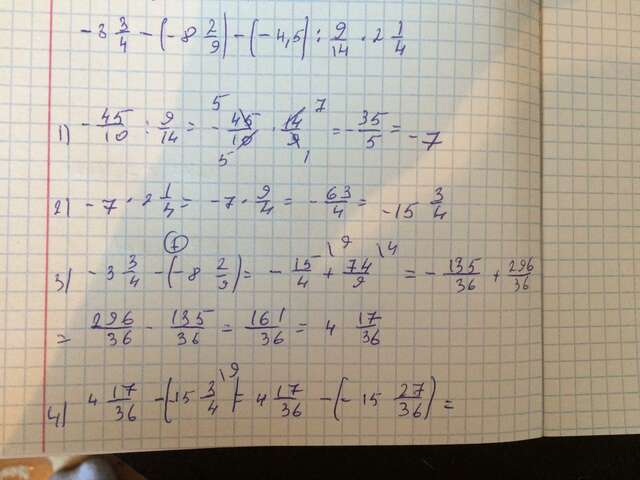 -3 3/4 - (-8 2/9) - (-4,5) : 9/14 · 2 1/4
1) -45/10 : 9/14 = -45/10 · 14/9 = -35/5 = -7
2) -7 · 2 1/4 = -7 · 9/4 = -63/4 = -15 3/4
3) -3 3/4 - (-8 2/9) = -15/4 \9 + 74/9 \4 = -135/36 + 296/36
= 296/36 - 135/36 = 161/36 = 4 17/36
4) 4 17/36 - (-15 3/4 \9) = 4 17/36 - (-15 27/36) =